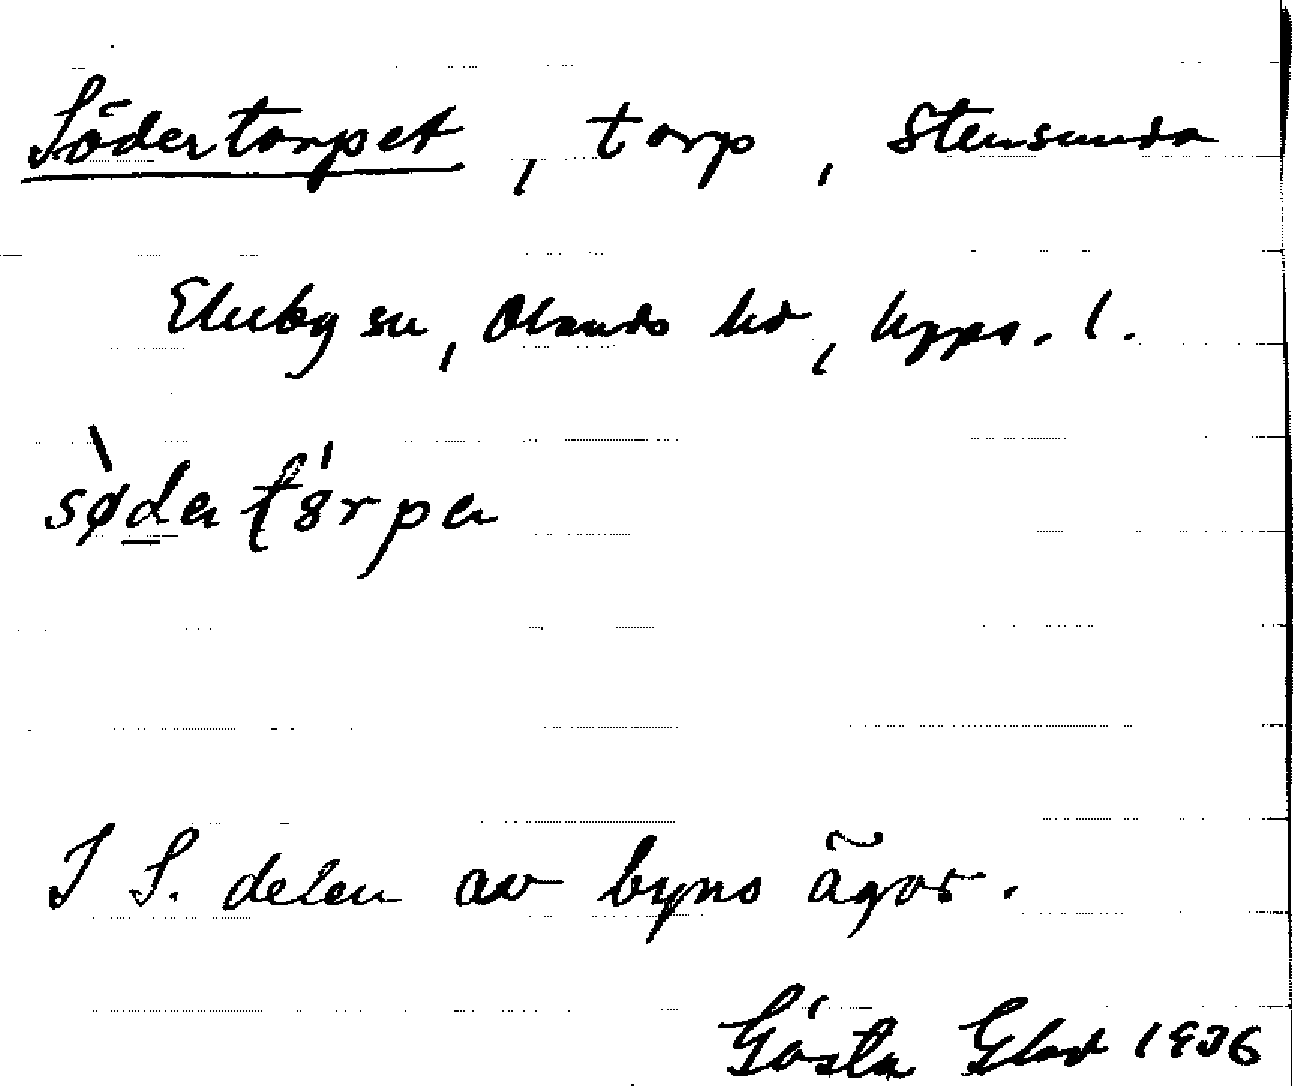 Södertorpet, torp, Stensunda
Ekeby sn, Olands hd, Upps. l.
sø̀dertórpe
I S. delen av byns ägor.
Gösta Glad 1936